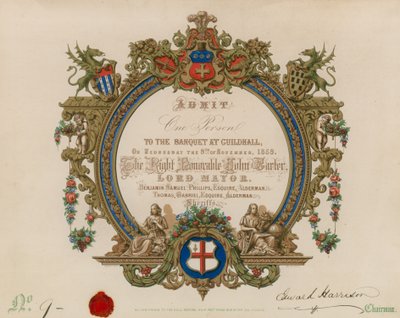 ADMIT
One Person
TO THE BANQUET AT GUILDHALL,
ON WEDNESDAY THE 9TH OF NOVEMBER, 1859.
The Right Honorable John Carter,
LORD MAYOR.
BENJAMIN SAMUEL PHILLIPS, ESQUIRE, ALDERMAN.
THOMAS GABRIEL, ESQUIRE, ALDERMAN.
Sheriffs.
No. 9-
Edward Harrison
Chairman.